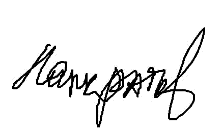 Панкратов